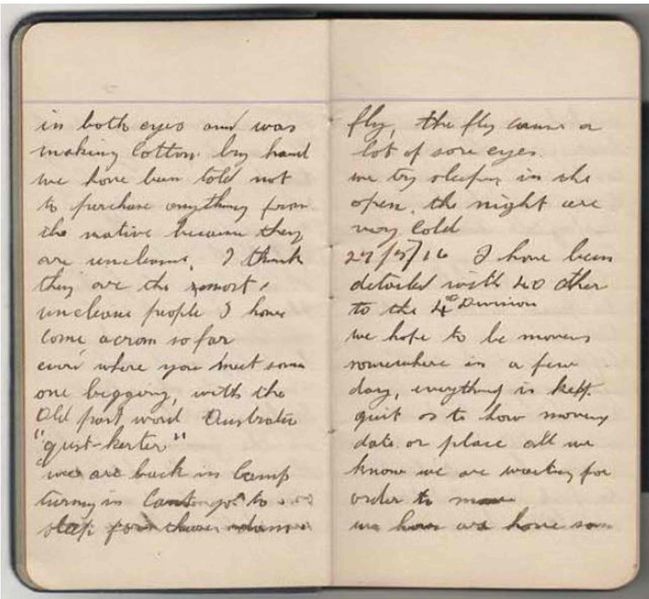 in both eyes and was
making Cotton by hand
we have been told not
to purchase anything from
the native because they
are uncleans, I think
they are the most
uncleane people I have
come across so far
every where you meet some
one begging, with the
Old part word Australia
we are back in Camp
turning in to
sleep
fly, the fly cause a
lot of sore eyes.
we try sleeping in the
open, the night are
very cold
27/5/16 I have been
detailed with 40 other
to the 4th Division
we hope to be moving
somewhere in a few
day, everything is kept
quit as to how moving
date or place all we
know we are waiting for
order to move
we have